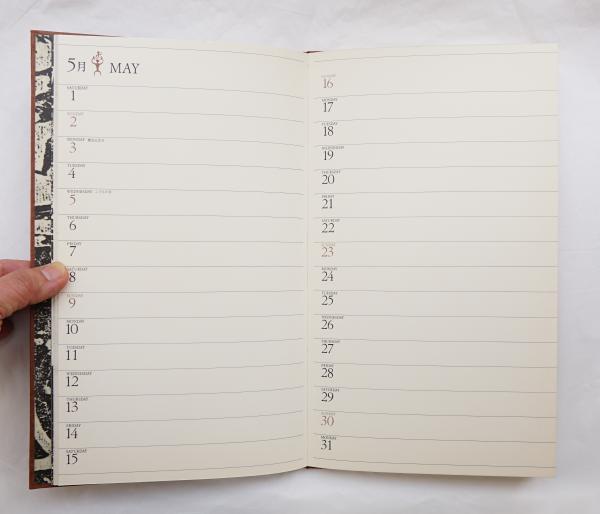 5月 MAY
SATURDAY
1
SUNDAY
2
MONDAY 憲法記念日
3
TUESDAY
4
WEDNESDAY こどもの日
5
THURSDAY
6
FRIDAY
7
SATURDAY
8
SUNDAY
9
MONDAY
10
TUESDAY
11
WEDNESDAY
12
THURSDAY
13
FRIDAY
14
SATURDAY
15
SUNDAY
16
MONDAY
17
TUESDAY
18
WEDNESDAY
19
THURSDAY
20
FRIDAY
21
SATURDAY
22
SUNDAY
23
MONDAY
24
TUESDAY
25
WEDNESDAY
26
THURSDAY
27
FRIDAY
28
SATURDAY
29
SUNDAY
30
MONDAY
31